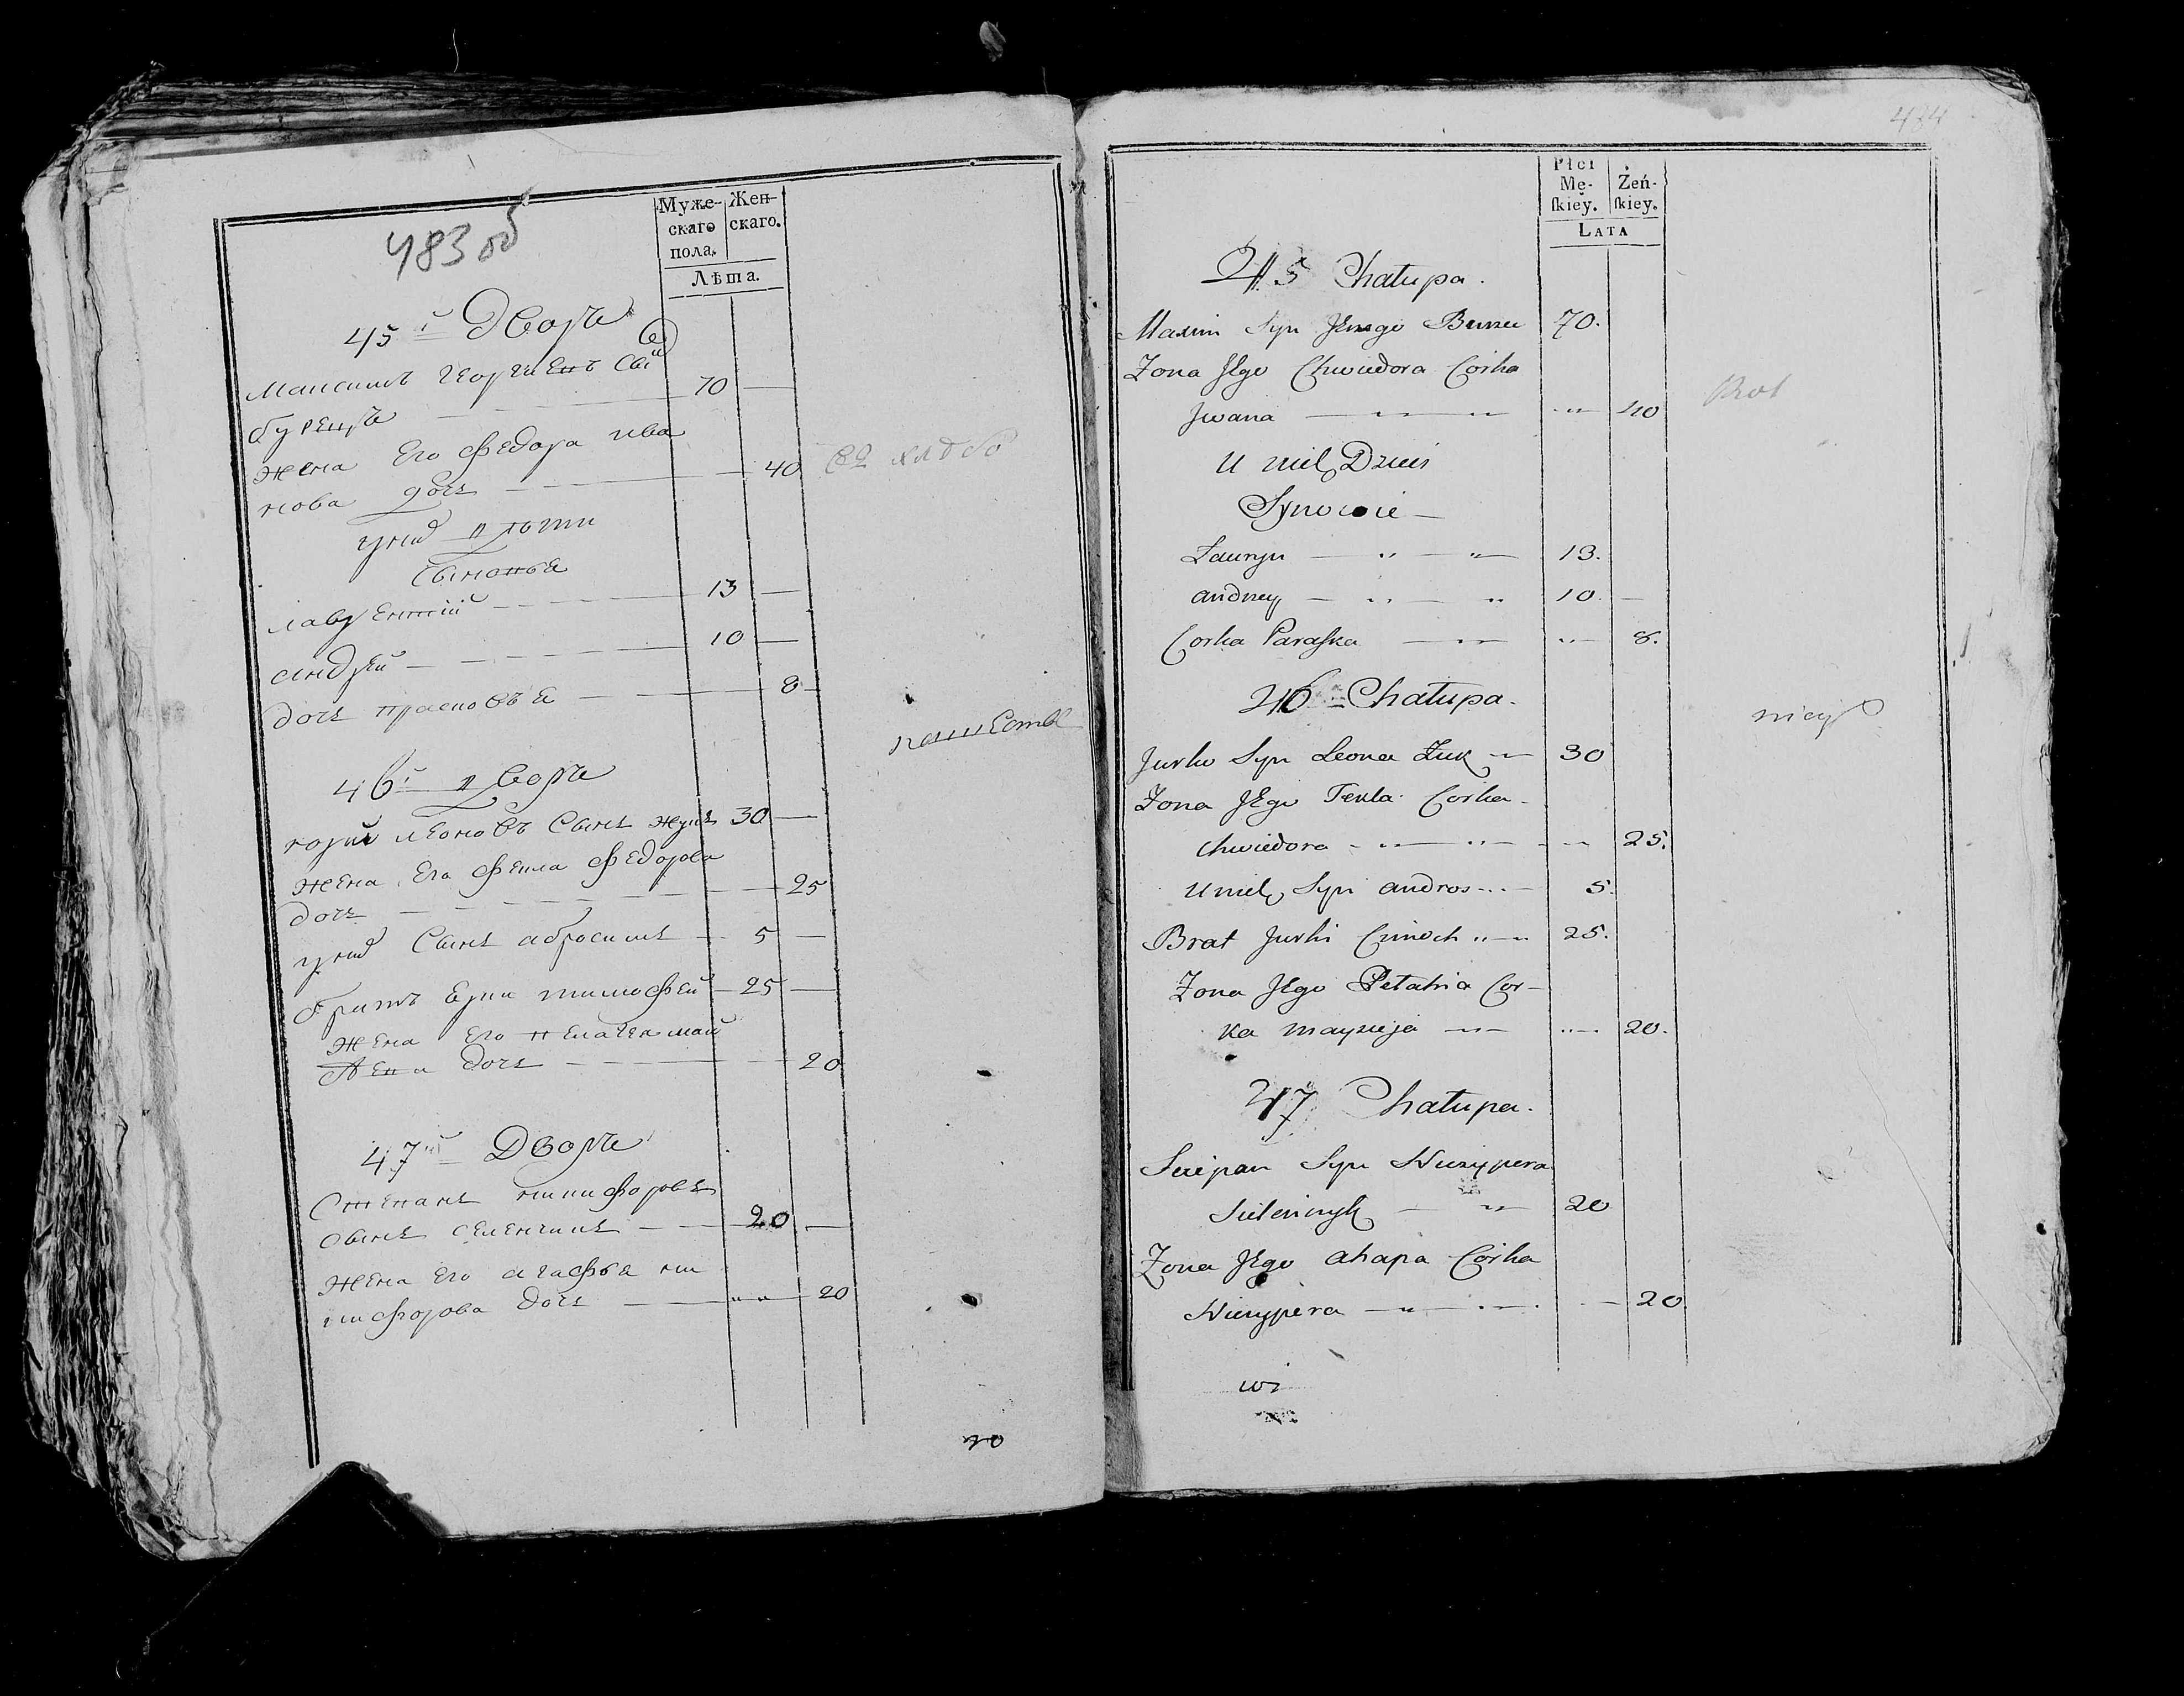 483 об
Муже-
скаго
пола.
Жен-
скаго.
Лѣта.
45й Дворъ
Максимъ Георгиевъ Сы
буренръ 70
жена Его Федора ива
нова дочь 40
у нид дѣти
Сыновья
лаврентий 13
андрей 10
дочь прасковъя 8
46й дворъ
юрий леоновъ Сынъ жукъ 30
жена Его Фекла Федорова
дочь 25
у нид Сынъ абросимъ 5
братъ Юрки тимофей 25
жена Его пелагея май
сѣева дочь 20
47й Дворъ
Степанъ никифоровъ
Сынъ селенчикъ 20
жена Его агафья ни
кифорова дочь 20
484
Płci
Mę-
ſkiey.
Żeń-
ſkiey.
LATA
45 Chałupa.
Maxim Syn 70.
Zona JEgo Chwiedora Corka
Jwana 40
U nich Dzieci
Synowie
Ławryn 13.
andrzey 10.
Corka Paraſka 8.
46 Chałupa.
Jurko Syn Leona Zuk 30
Zona JEgo Tekla Corka
Chwiedora 25.
U nich Syn andros 5.
Brat Jurki Cimoch 25.
Zona JEgo Pełahia Cor-
ka mayzieja 20.
47 Chałupa.
Sciepan Syn Niczypera
Sielenczyk 20
Zona JEgo ahapa Corka
Niczypera 20